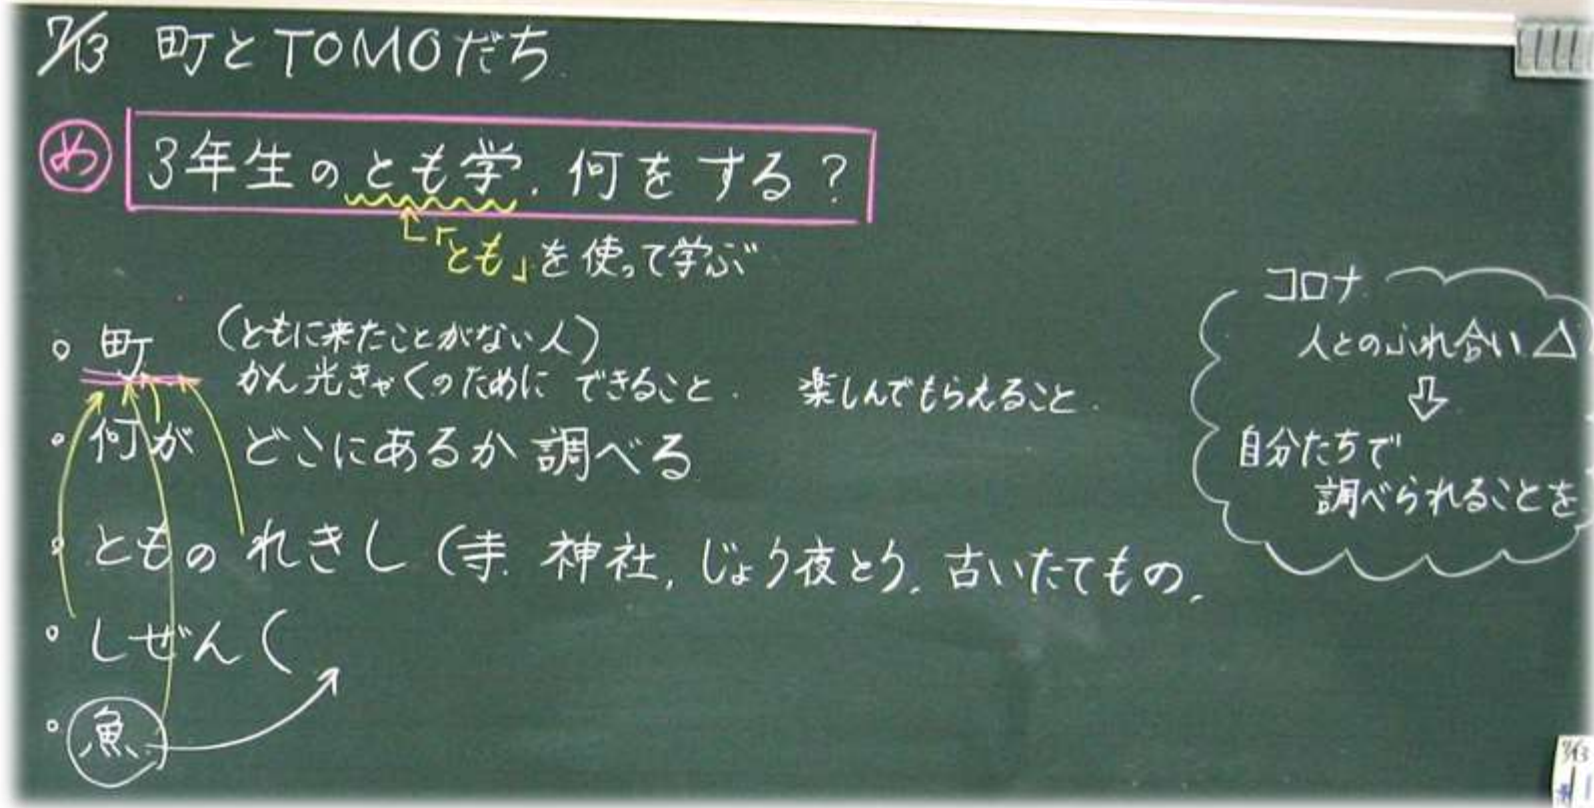 7/13 町とTOMOだち
め 3年生のとも学. 何をする?
「とも」を使って学ぶ
。町 (ともに来たことがない人)
かん光きゃくのために できること. 楽しんでもらえること.
。何が どこにあるか調べる
。ともの れきし (寺. 神社, じょう夜とう. 古いたてもの,
。しぜん (
。魚
コロナ
人とのふれ合い △
⇩
自分たちで
調べられることを
7/13